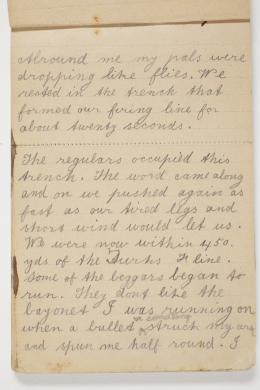 Allround me my pals were
dropping like flies. We
rested in the trench that
formed our firing line for
about twenty seconds.
The regulars occupied this
trench. The word came along
and on we pushed again as
fast as our tired legs and
short wind would let us.
We were now within 450.
yds of the Turks line.
Some of the beggars began to
run. They dont like the
bayonet I was running on
when a bullet or something struch my arm
and spun me half round. I